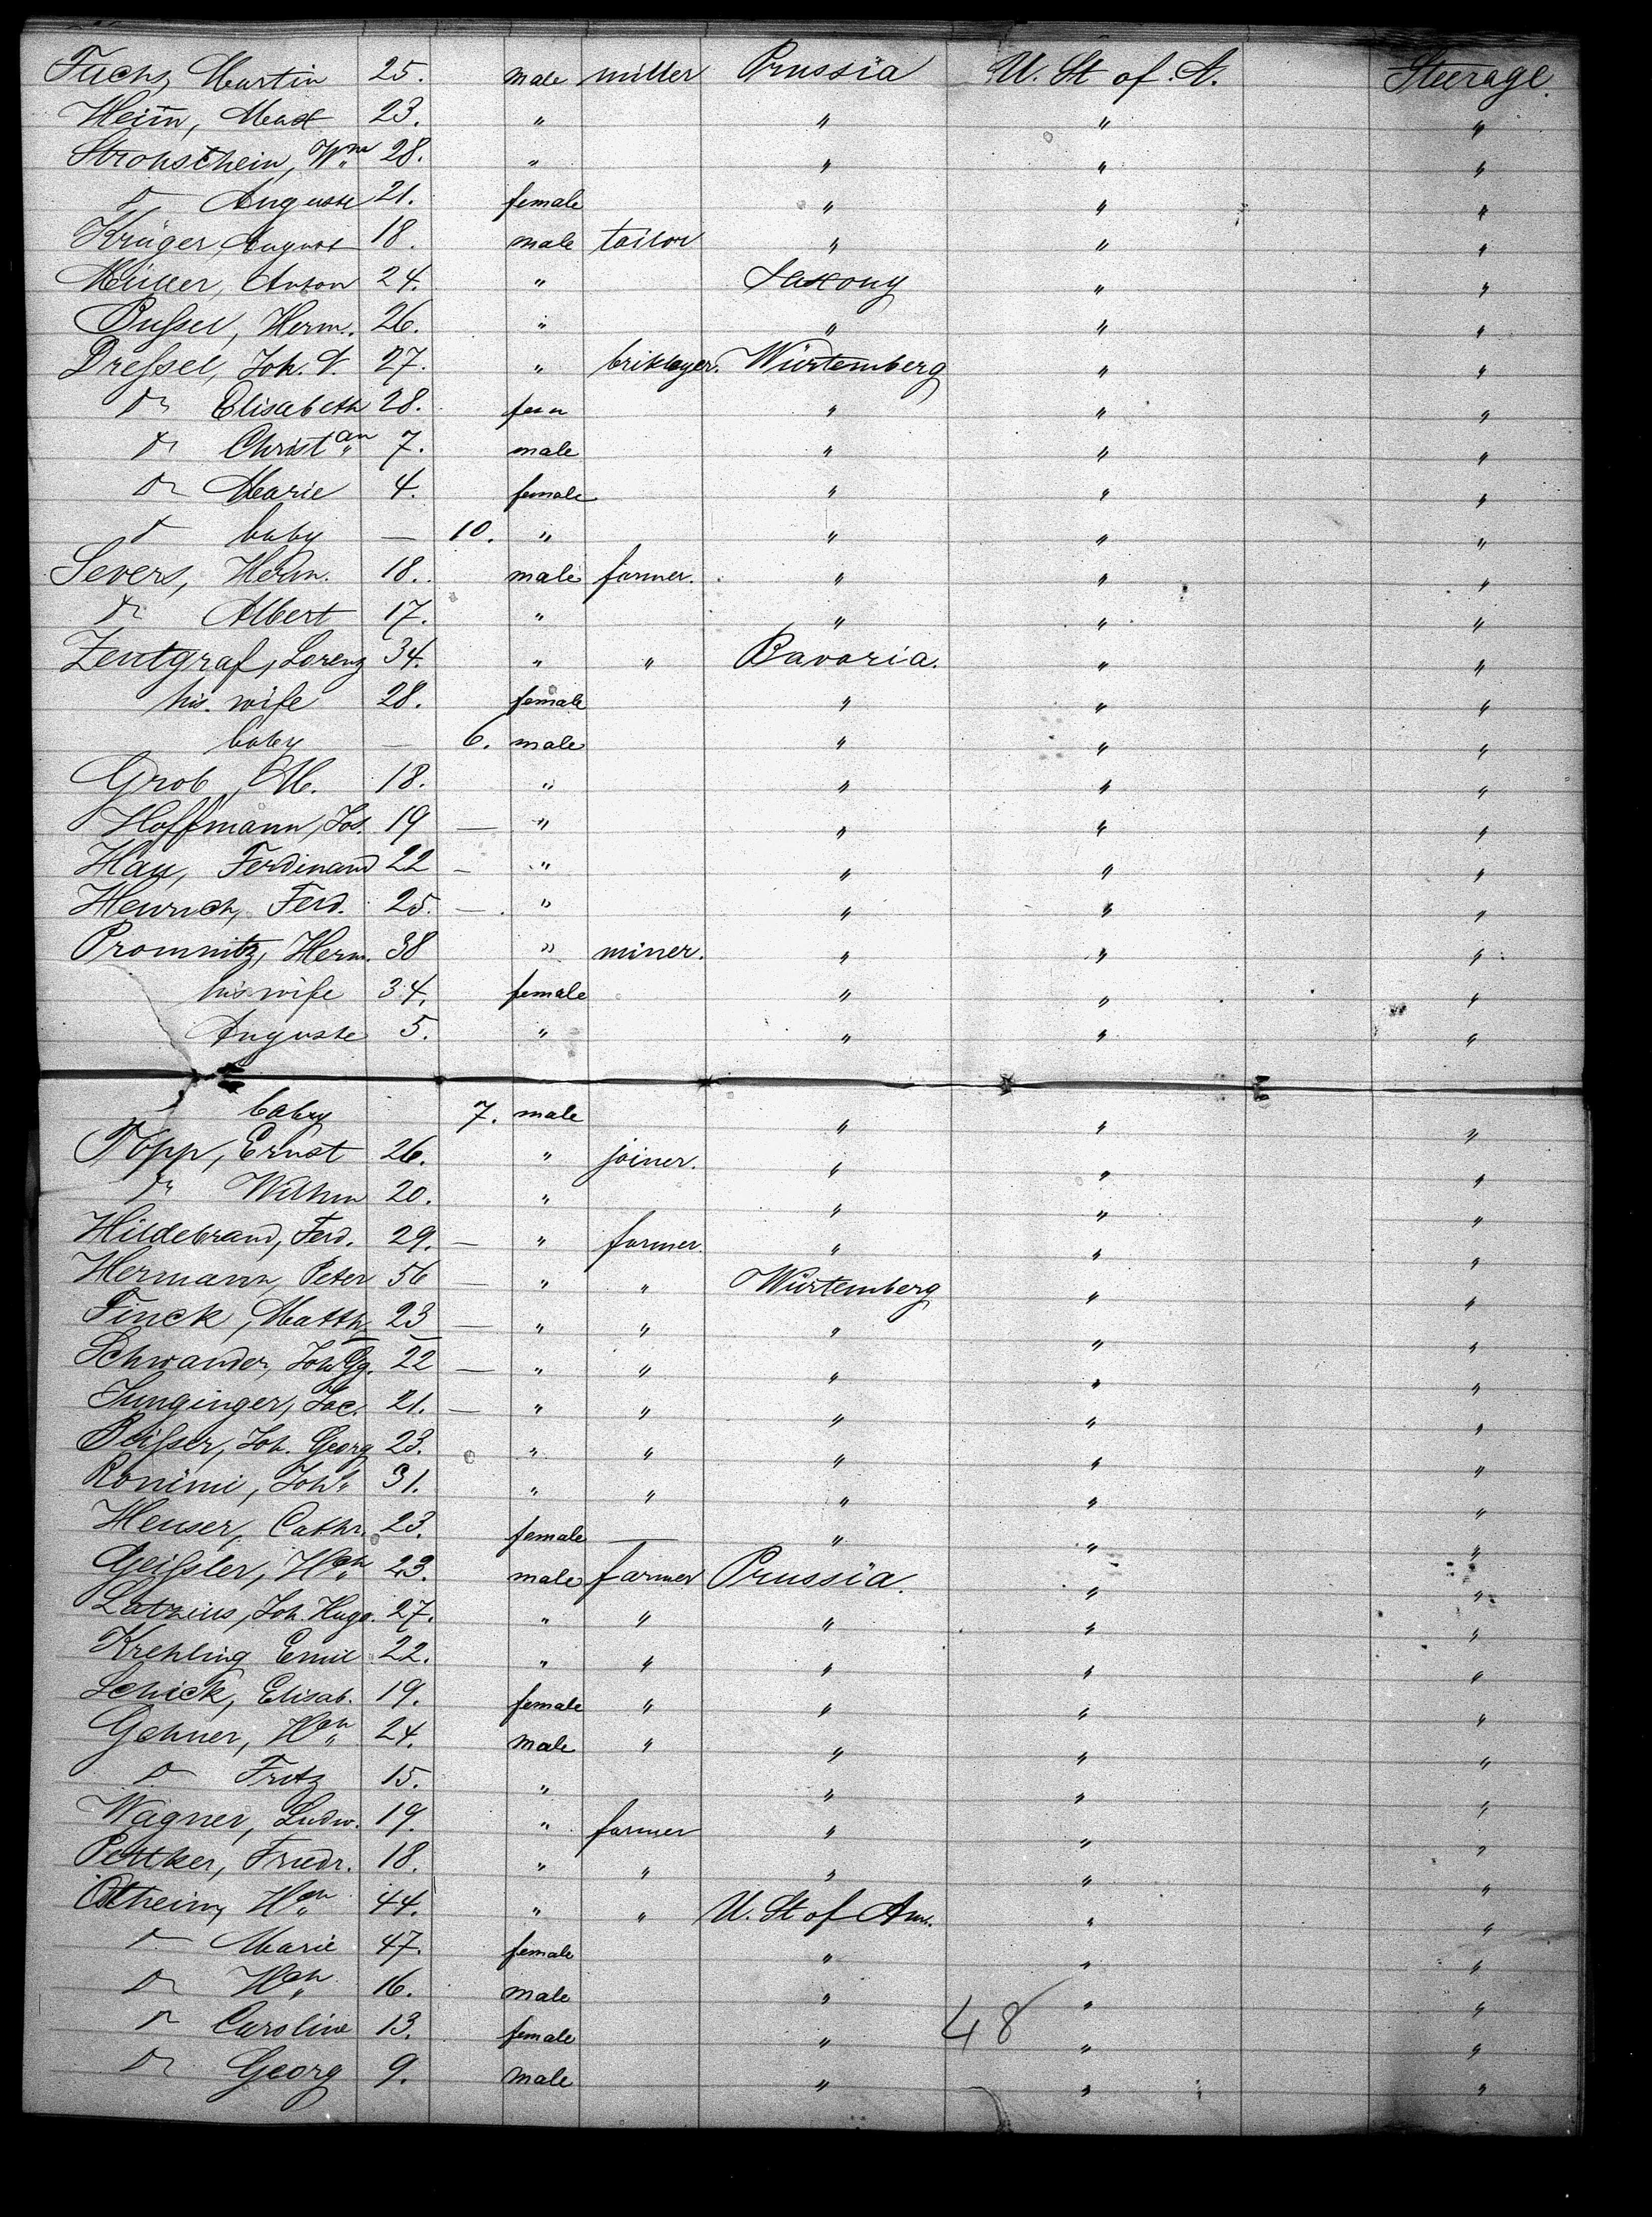 Fuchs, Martin 25. male miller Prussia U. St of A. Steerage.
Heim, Max 23. " " " "
Strohschein, Wm 28. " " " "
do Auguste 21. female " " "
Krüger, August 18. male tailor " " "
Müller, Anton 24. " Saxony " "
Pußel, Herm. 26. " " " "
Dreßel, Joh. 27. " briklayer. Würtemberg " "
do Elisabeth 28. fem " " "
do Christan 7. male " " "
do Marie 4. female " " "
do baby — 10. " " " "
Severs, Herm. 18. male farmer. " " "
do Albert 17. " " " "
Zentgraf, Lorenz 34. " " Bavaria. " "
his wife 28. female " " "
baby — 6. male " " "
Grob, M. 18. " " " "
Hoffmann, Jos. 19 — " " " "
Hau, Ferdinand 22 — " " " "
Henrich, Ferd. 25. — " " " "
Promnitz, Herm. 38 " miner. " " "
his wife 34. female " " "
Auguste 5. " " " "
baby 7. male " " "
Topp, Ernst 26. " joiner. " " "
do Wilhm 20. " " " "
Hildebrand, Ferd. 29. — " farmer. " " "
Hermann, Peter 56 — " " Würtemberg " "
Finck, Matth. 23 — " " " " "
Schwander, Joh Gg. 22 — " " " " "
Junginger, Jac. 21. — " " " " "
Beißer, Joh. Georg 23. " " " " "
Ronimi, Johs 31. " " " " "
Heuser, Cathr. 23. female — " " "
Geißler, Hch 23. male farmer Prussia. " "
Joh. Hugo. 27. " " " " "
Krehling Emil 22. " " " " "
Schick, Elisab. 19. female " " " "
Gehner, Hch 24. male " " " "
do Fritz 15. " " " "
Wagner, Ludw. 19. " farmer " " "
Pettker, Friedr. 18. " " " " "
Ostheim, Hch 44. " " U. St of Am. " "
do Marie 47. female " " "
do Hch 16. male " " "
do Caroline 13. female " 48 " "
do Georg 9. male " " "